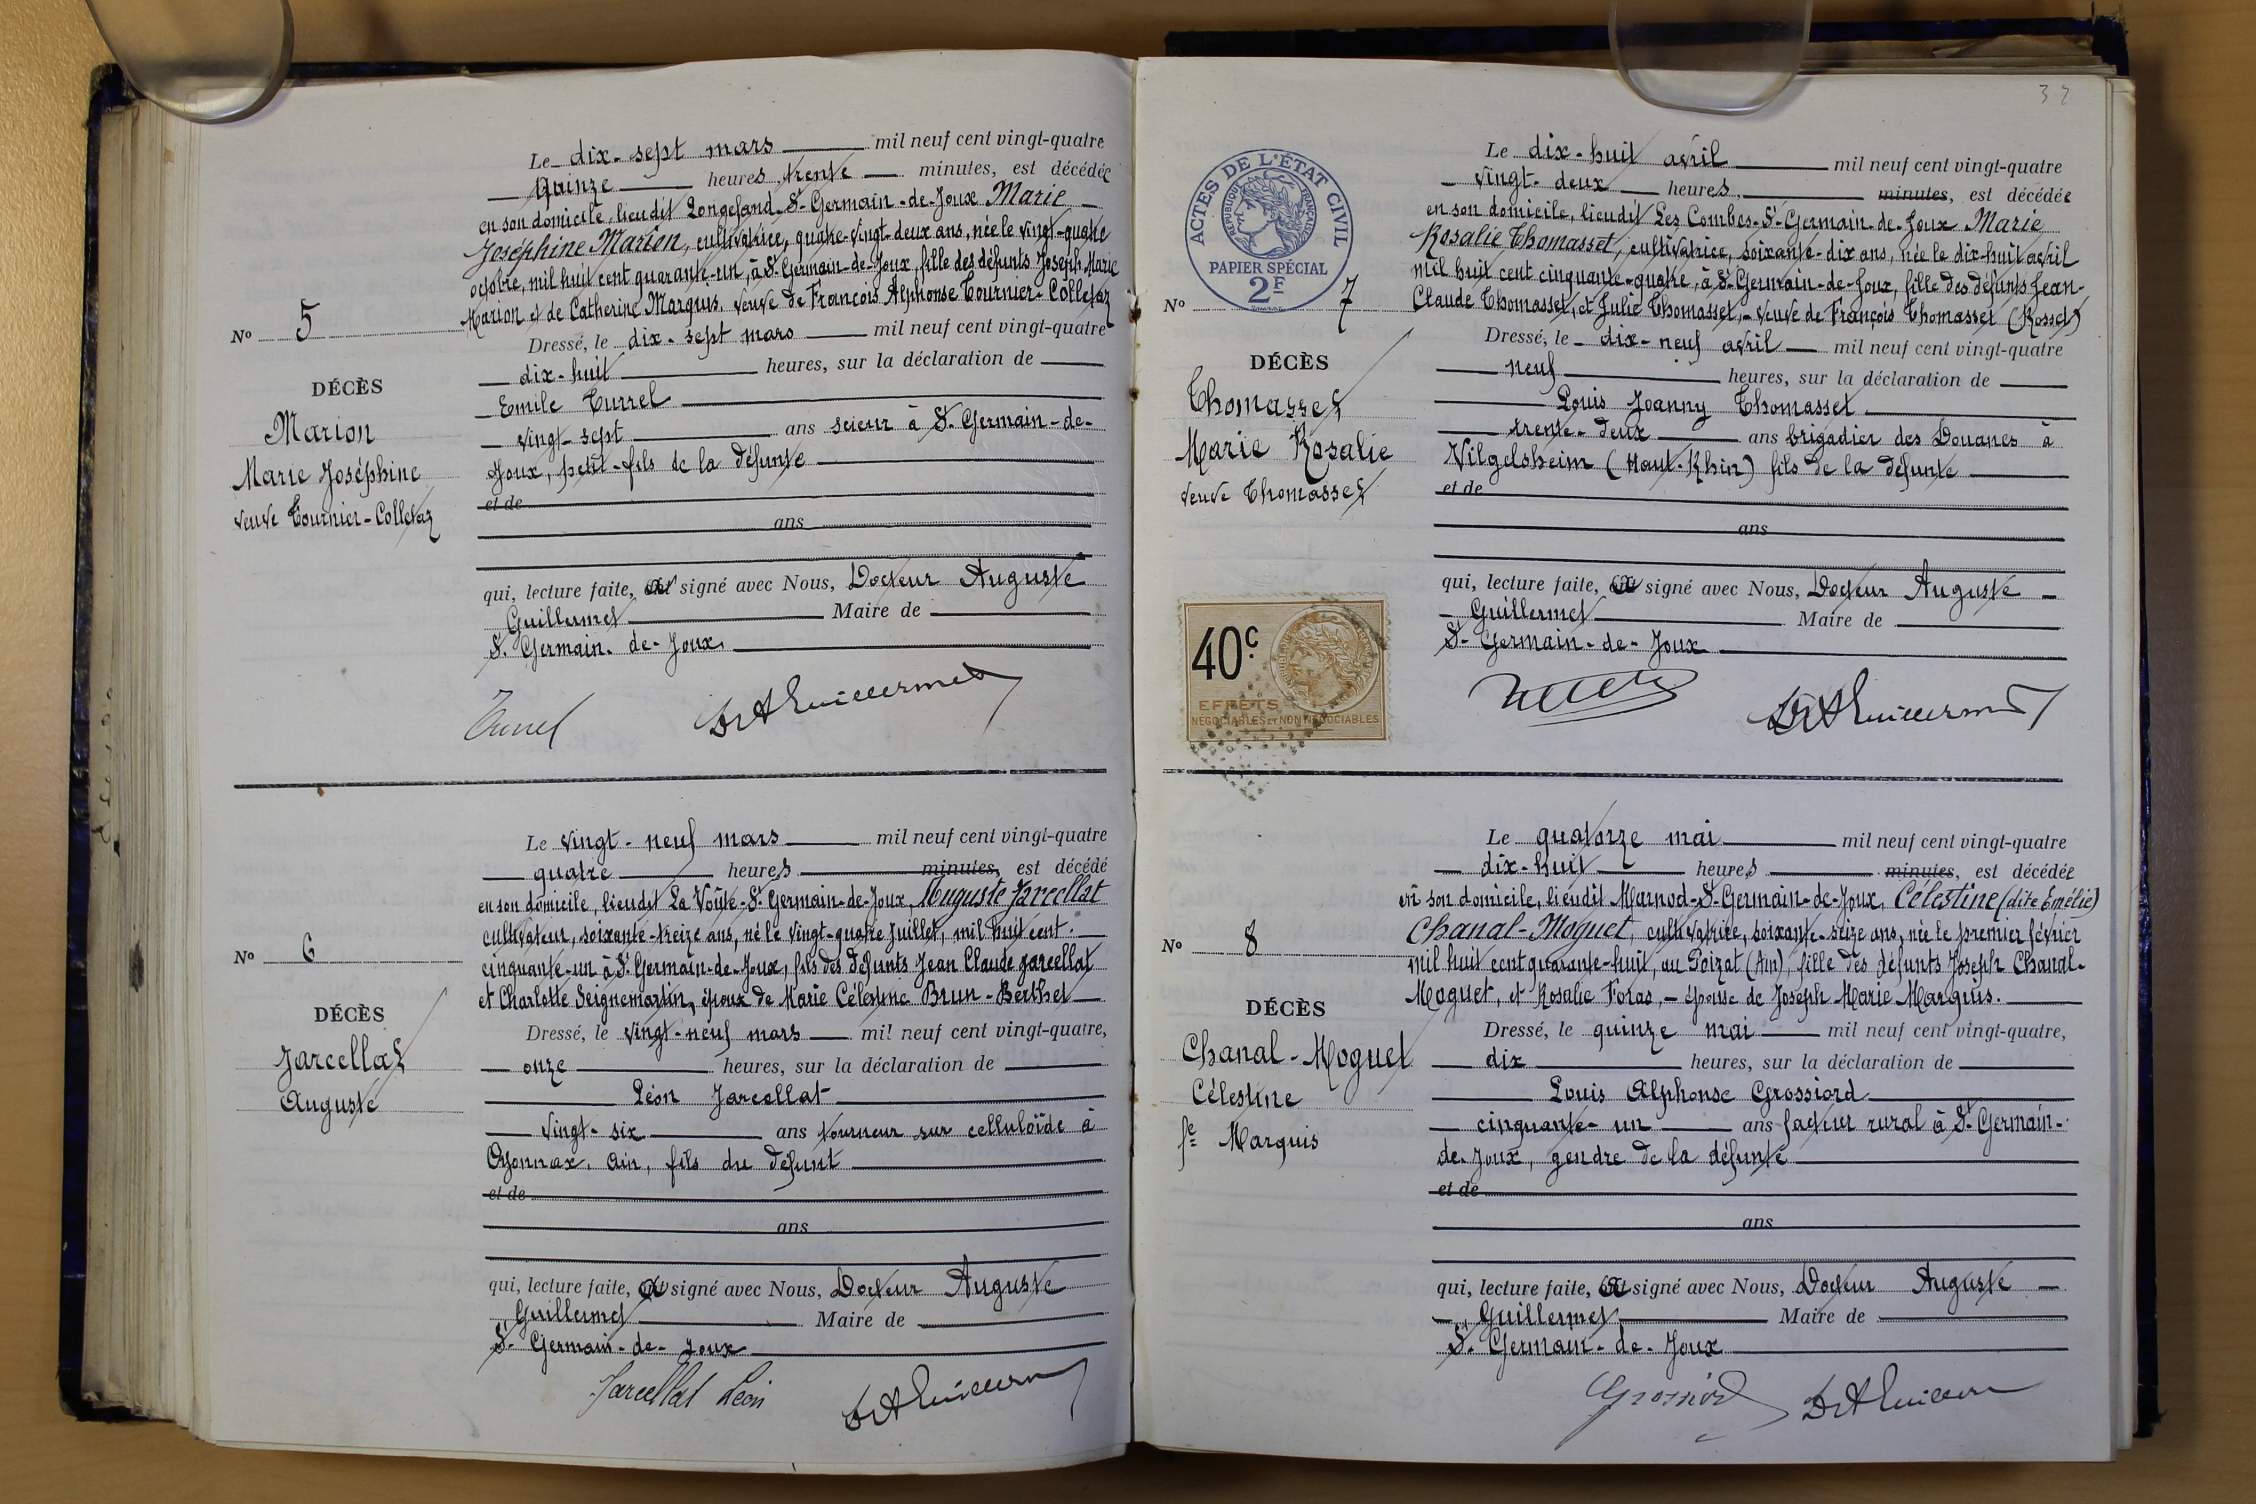 Le dix-sept mars mil neuf cent vingt-quatre
Quinze heures trente minutes, est décédée
en son domicile, lieudit Longefand-St-Germain-de-Joux Marie
Joséphine Marion, cultivatrice, quatre-vingt-deux ans, née le vingt-quatre
octobre, mil huit cent quarante-un, à St-Germain-de-Joux, fille des défunts Joseph Marie
Marion et de Catherine Marquis, veuve de François Alphonse Tournier-Colletaz
No 5
Dressé, le dix-sept mars mil neuf cent vingt-quatre
dix-huit heures, sur la déclaration de
DÉCÈS
Emile Turrel
Marion
vingt-sept ans scieur à St-Germain-de-
Marie Joséphine
Joux, petit-fils de la défunte
veuve Tournier-Colletaz
et de
ans
qui, lecture faite, a signé avec Nous, Docteur Auguste
Guillermet Maire de
St-Germain-de-Joux
Turrel DrAGuillermet
Le vingt-neuf mars mil neuf cent vingt-quatre
quatre heures minutes, est décédé
en son domicile, lieudit La Voûte-St-Germain-de-Joux, Auguste Jarcellat
cultivateur, soixante-treize ans, né le vingt-quatre Juillet, mil huit cent
No 6
cinquante-un à St-Germain-de-Joux, fils des défunts Jean Claude Jarcellat
et Charlotte Seignemartin, époux de Marie Célestine Brun-Berthet
DÉCÈS
Dressé, le vingt-neuf mars mil neuf cent vingt-quatre,
Jarcellat
onze heures, sur la déclaration de
Auguste
Léon Jarcellat
vingt-six ans tourneur sur celluloïde à
Oyonnax, Ain, fils du défunt
et de
ans
qui, lecture faite, a signé avec Nous, Docteur Auguste
Guillermet Maire de
St-Germain-de-Joux
Jarcellat Léon DrAGuillerm
37
ACTES DE L'ÉTAT CIVIL
RÉPUBLIQUE FRANÇAISE
PAPIER SPÉCIAL
2F
Le dix-huit avril mil neuf cent vingt-quatre
vingt-deux heures, minutes, est décédée
en son domicile, lieudit Les Combes-St-Germain-de-Joux Marie
Rosalie Thomasset, cultivatrice, soixante-dix ans, née le dix-huit avril
mil huit cent cinquante-quatre, à St-Germain-de-Joux, fille des défunts Jean-
No 7
Claude Thomasset, et Julie Thomasset,-veuve de François Thomasset (Rosset)
Dressé, le dix-neuf avril mil neuf cent vingt-quatre
DÉCÈS
neuf heures, sur la déclaration de
Thomasset
Louis Joanny Thomasset
Marie Rosalie
trente-deux ans brigadier des Douanes à
veuve Thomasset
Vilgelsheim (Haut-Rhin) fils de la défunte
et de
ans
qui, lecture faite, a signé avec Nous, Docteur Auguste
Guillermet Maire de
St-Germain-de-Joux
40c
EFFETS
NÉGOCIABLES ET NON NÉGOCIABLES
DrAGuillermet
Le quatorze mai mil neuf cent vingt-quatre
dix-huit heures minutes, est décédée
en son domicile, lieudit Marnod-St-Germain-de-Joux, Célestine (dite Emélie)
Chanal-Moguet, cultivatrice, soixante-seize ans, née le premier février
No 8
mil huit cent quarante-huit, au Poizat (Ain), fille des défunts Joseph Chanal-
Moguet, et Rosalie Foras,-épouse de Joseph Marie Marquis.
DÉCÈS
Dressé, le quinze mai mil neuf cent vingt-quatre,
Chanal-Moguet
dix heures, sur la déclaration de
Célestine
Louis Alphonse Grossiord
fe Marquis
cinquante-un ans facteur rural à St-Germain-
de-Joux, gendre de la défunte
et de
ans
qui, lecture faite, a signé avec Nous, Docteur Auguste
Guillermet Maire de
St-Germain-de-Joux
Grossiord DrAGuillerm